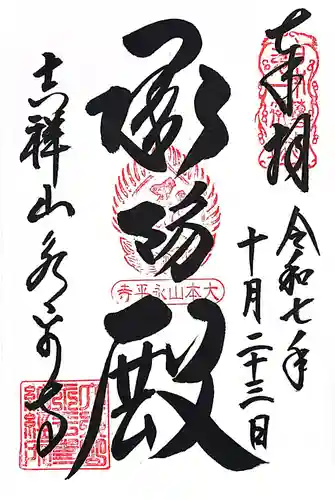 奉拝
令和七年
十月二十三日
承陽殿
大本山永平寺
吉祥山永平寺